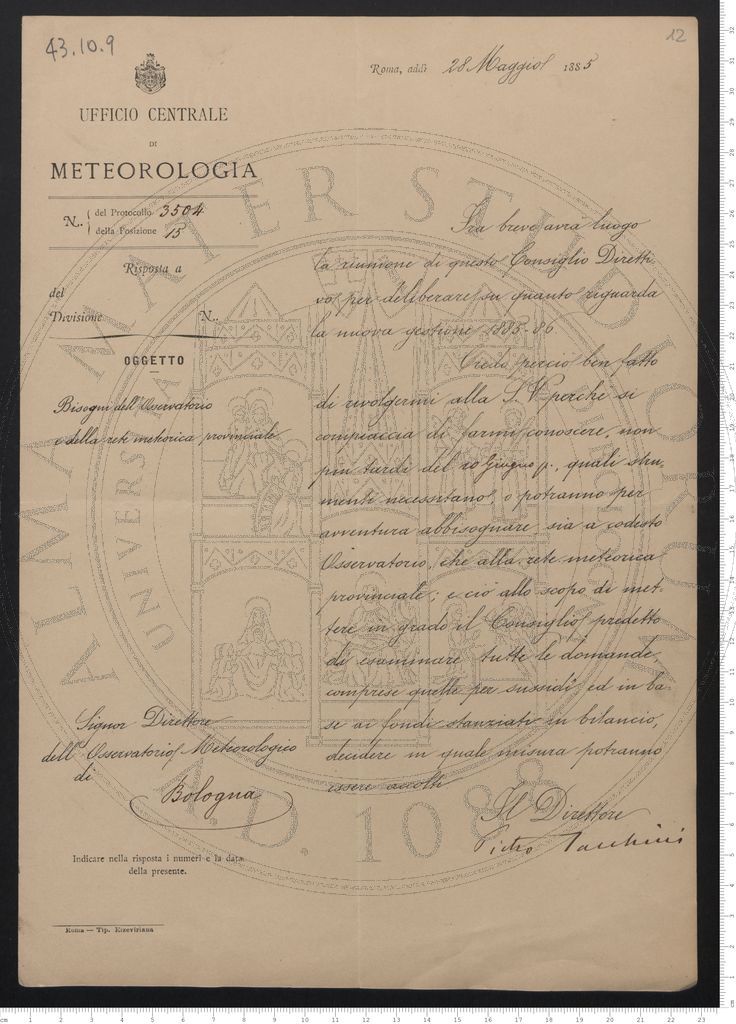 43.10.9
12
Roma, addì 28 Maggio 1885
UFFICIO CENTRALE
DI
METEOROLOGIA
N. del Protocollo 3504
della Posizione 15
Risposta a
del
Divisione N.
OGGETTO
Bisogni dell'Osservatorio
e della rete meteorica provinciale
Fra breve avrà luogo
la riunione di questo Consiglio Diretti
vo per deliberare su quanto riguarda
la nuova gestione 1885-86.
Credo perciò ben fatto
di rivolgermi alla S. V. perchè si
compiaccia di farmi conoscere, non
più tardi del 10 Giugno p., quali stru-
menti necessitano o potranno per
avventura abbisognare sia a codesto
Osservatorio, che alla rete meteorica
provinciale; e ciò allo scopo di met-
tere in grado il Consiglio predetto
di esaminare tutte le domande,
comprese quelle per sussidi ed in ba-
se ai fondi stanziati in bilancio,
decidere in quale misura potranno
essere accolti
Il Direttore
Pietro Tacchini
Signor Direttore
dell'Osservatorio Meteorologico
di
Bologna
Indicare nella risposta i numeri e la data
della presente.
Roma — Tip. Elzeviriana
ALMA MATER STUDIORUM
UNIVERSITÀ
A.D. 1088